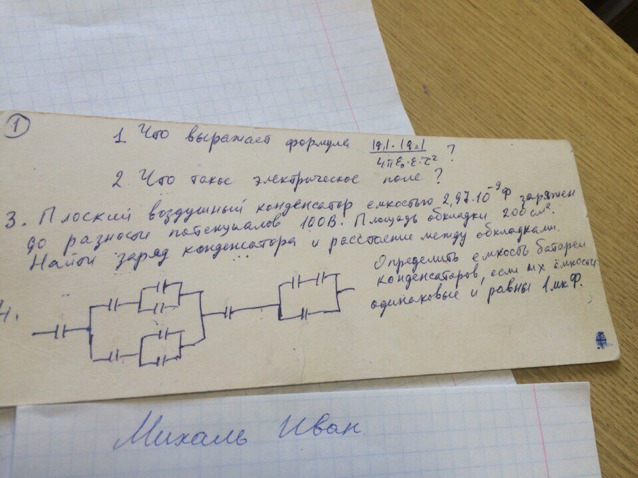 1
1 Что выражает формула |q₁|·|q₂| / 4πε₀·ε·r² ?
2 Что такое электрическое поле ?
3. Плоский воздушный конденсатор емкостью 2,97·10⁻⁹ Ф заряжен
до разности потенциалов 100В. Площадь обкладки 200 см².
Найти заряд конденсатора и расстояние между обкладками.
4.
Определить емкость батареи
конденсаторов, если их ёмкости
одинаковые и равны 1 мкФ.
Михаль Иван